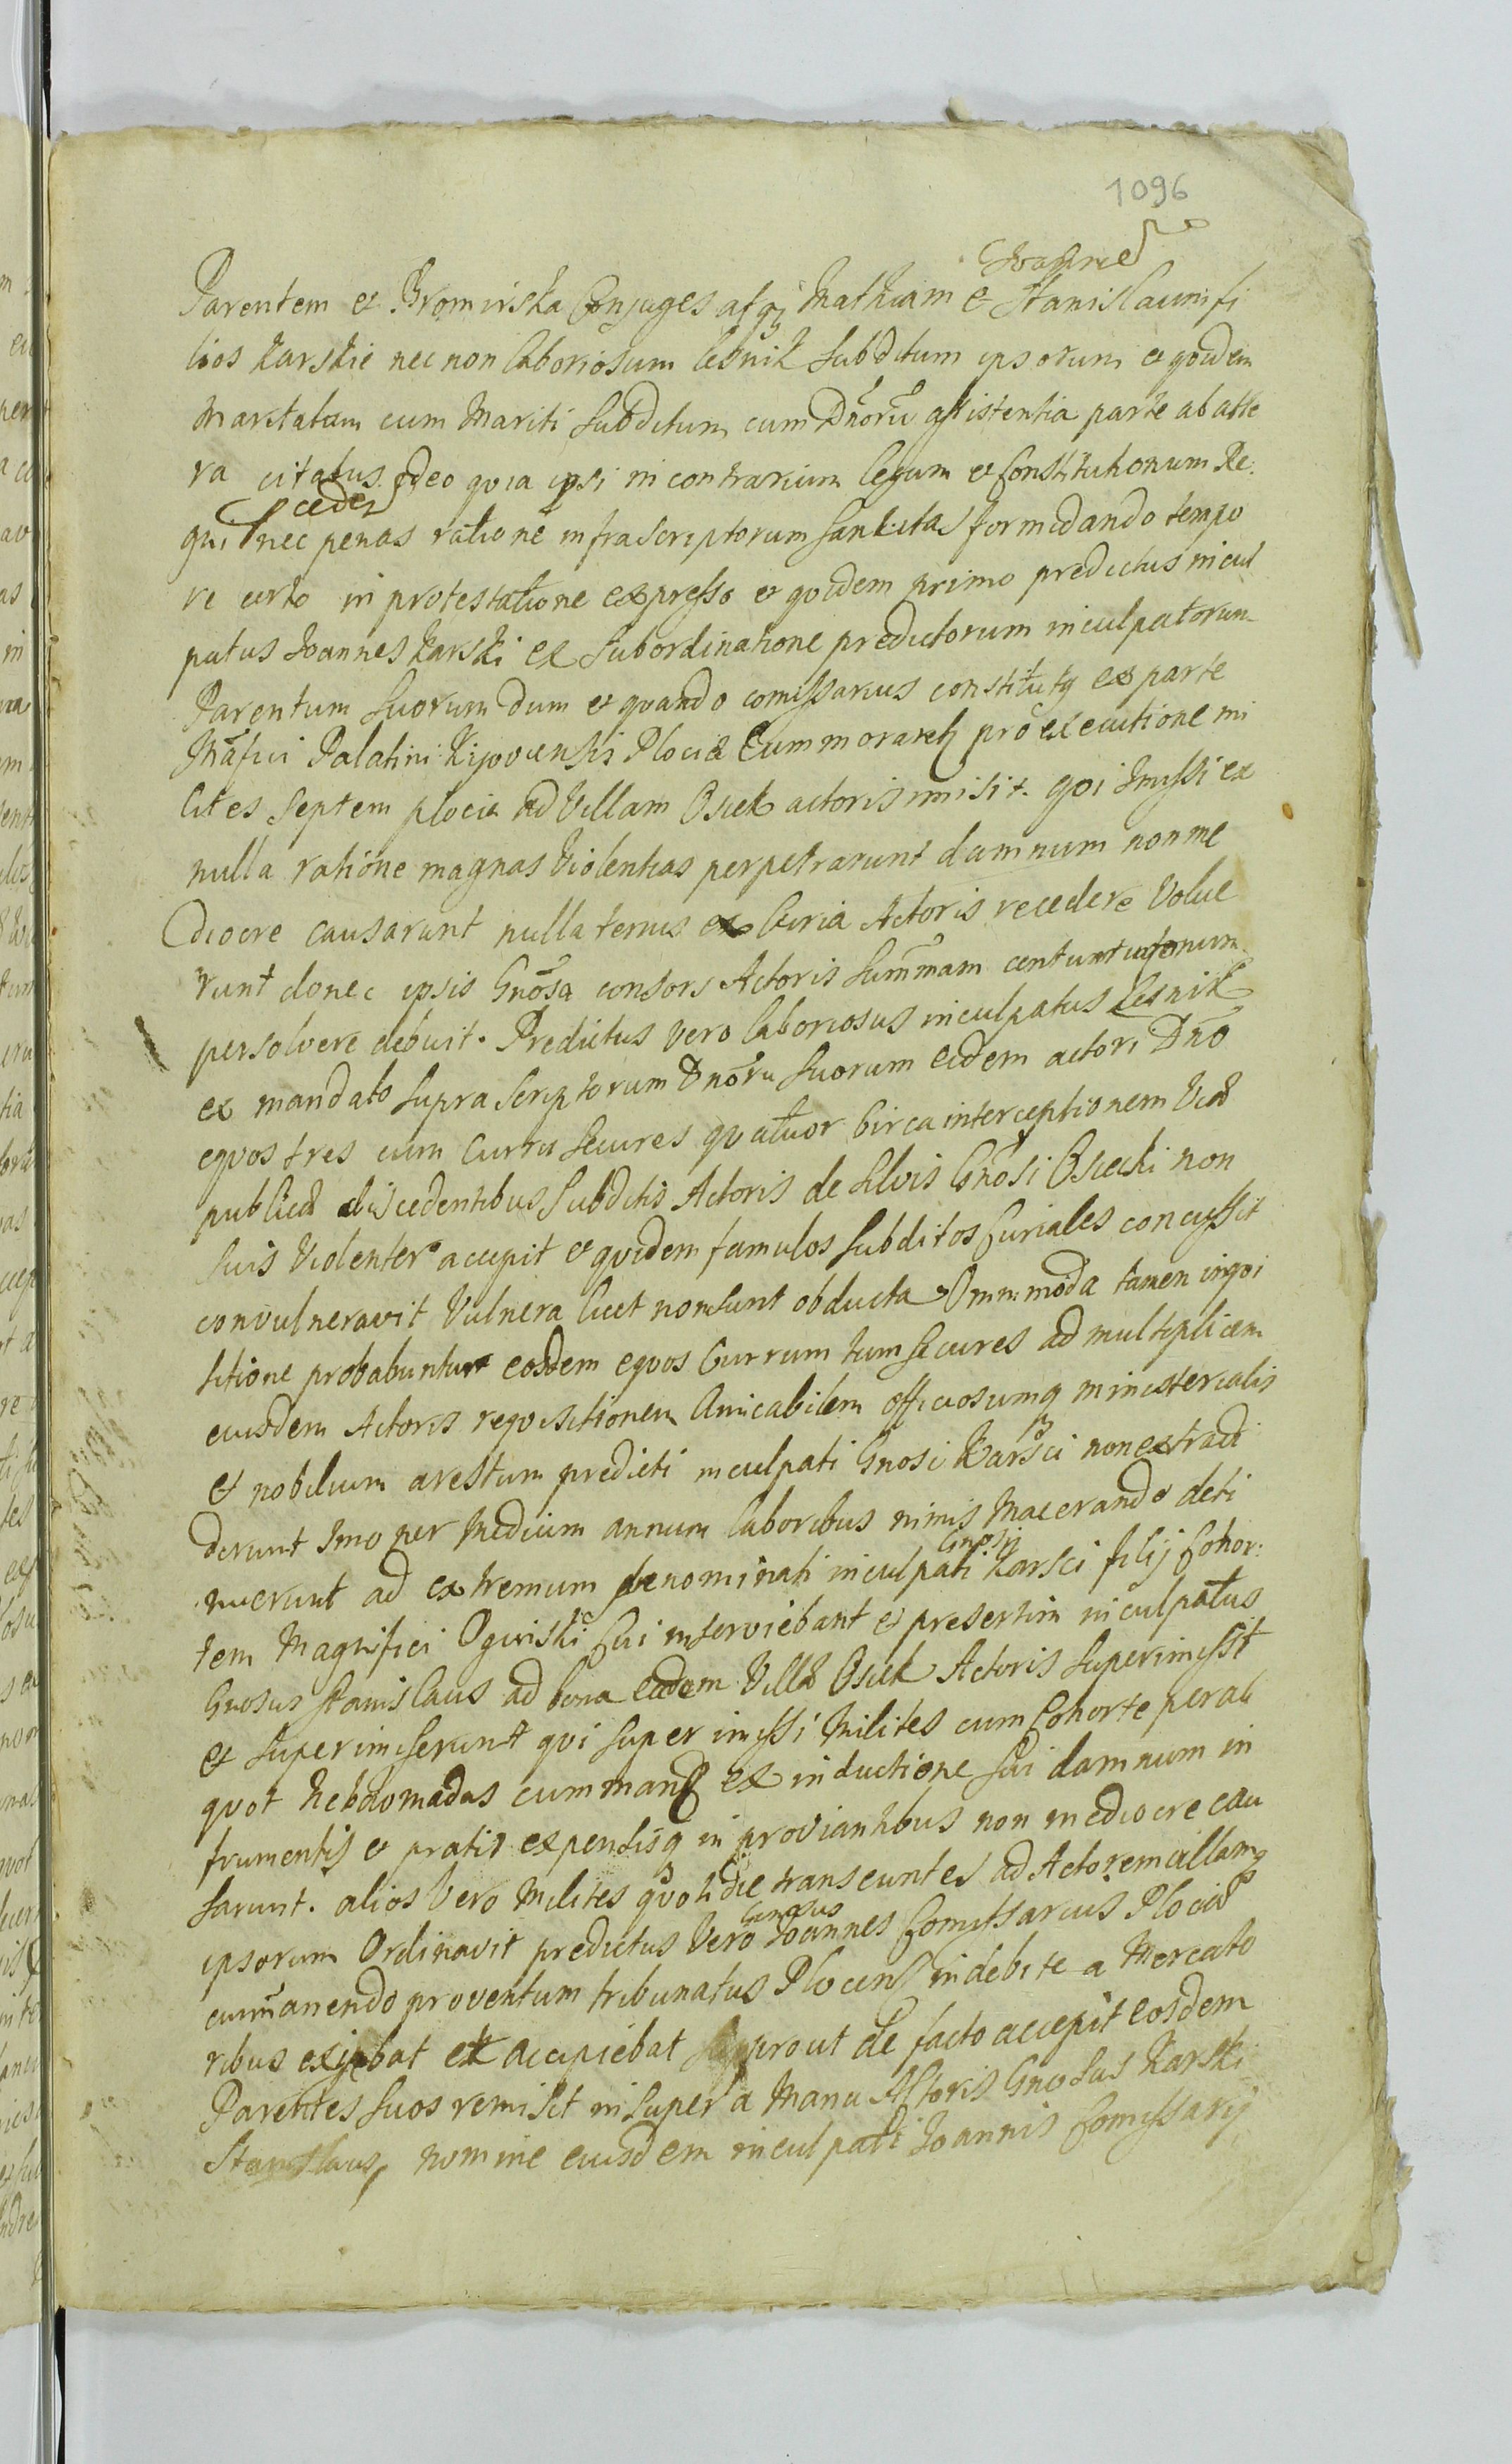 1096
Joannē
Parentem et Bromirska Conjuges atq₃ Mathiam et Stanislaum fi
lios Karskie nec non laboriosum Lesnik subditum ipsorum et quidem
Maritatam cum Mariti subditum cum Dnorū assistentia parte ab alte
ra citatus. Ideo quia ipsi in contrarium legum et Constitutionum Re
ceden
gni nec penas ratione infrascriptorum sancitas formidando tempo
re certo in protestatione expresso et quidem primo predictus incul
patus Joannes Karski ex subordinatione predictorum inculpatorum
Parentum suorum dum et quando comissarius constitutq ex parte
Mafici Palatini Kijoviensis Plociæ Cummorareh pro executione mi
lites septem plociæ ad Villam Osiek actoris imisit. qui Imissi ex
nulla ratione magnas violentias perpetrarunt damnum non me
diocre causarunt nullatenus ex Curia Actoris recedere volue
runt donec ipsis Gnosa consors Actoris summam centum
persolvere debuit. Predictus vero laboriosus inculpatus Lesnik
ex mandato supra scriptorum Dnoru suorum eidem actori Dno
equos tres cum curru secures quatuor circa interceptionem Viæ
publicæ discedentibus subditis Actoris de silvis Gnosi Osiecki non
suis violenter accepit et quidem famulos subditos Curiales concussit
convulneravit Vulnera licet non sunt obducta Omnimoda tamen inqui
sitione probabuntur eosdem equos Currum tum secures ad multiplicem
eiusdem Actoris requisitionem Amicabilem officiosumq ministerialis
et nobilium arestum predicti inculpati Gnosi Karsci non extradi
derunt Imo per Medium annum laboribus nimis Macerando deti
Gnosi
nuerunt ad extremum denominati inculpati Karsci filij Cohor
tem Magnifici Oginski Cui inserviebant et presertim inculpatus
Gnosus Stanislaus ad bona eadem Villæ Osiek Actoris superimissit
et superimiserunt qui super imissi Milites cum Cohorte per ali
quot hebdomadas cummanen ex inductione sui damnum in
frumentis et pratis expensisq₃ in proviantibus non mediocre cau
sarunt. alios vero Milites quotidie transeuntes ad Actorem villamq
Gnosus
ipsorum Ordinavit predictus vero Joannes Comissarius Plociæ
cummanendo proventum tribunatus Plocens indebite a Mercato
ribus exigebat et accipiebat prout de facto accepit eosdem
Parentes suos remisit insuper a Manu Actoris Gnosus Karski
Stanislaus, nomine eiusdem inculpati Joannis Comissarij